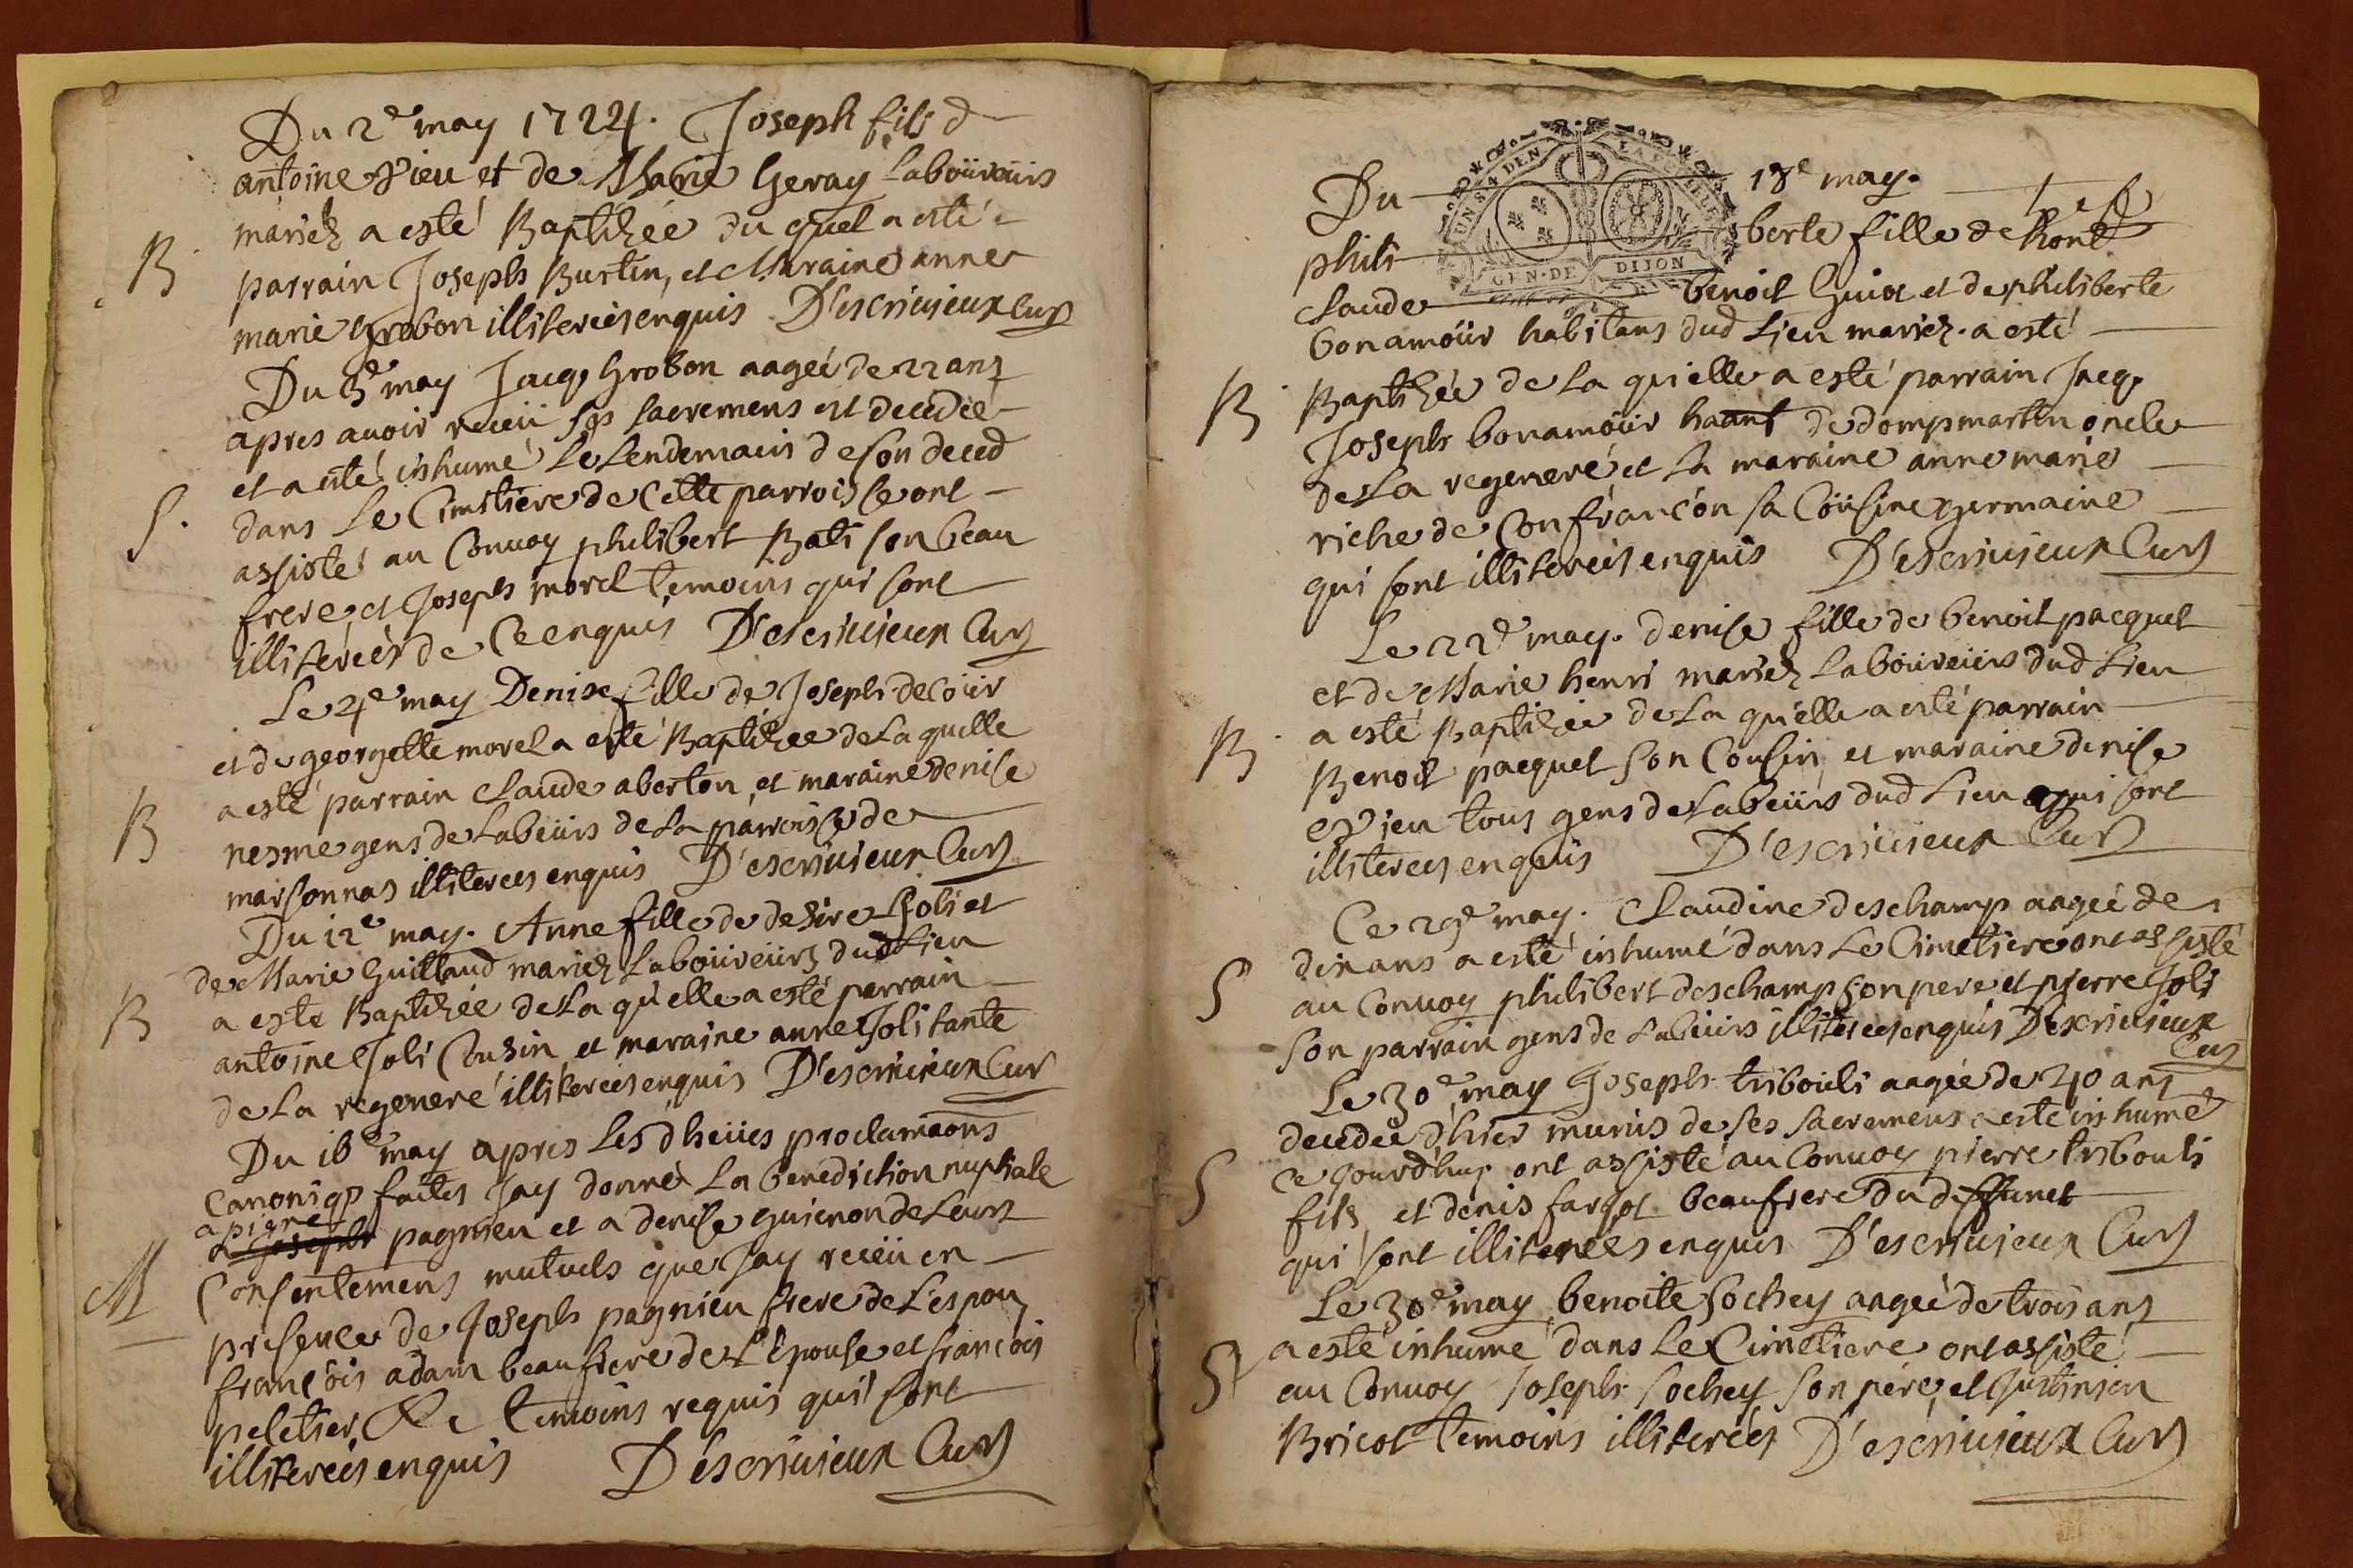 Du 2e may 1724. Joseph fils d
antoine Vieu et de Marie Geray laboureurs
mariez a esté Baptizée du quel a esté
B
parrain Joseph Burtin, et Maraine anne
marie grobon illiterées enquis D'escriuieux Curé
Du 3e may Jacq, Grobon aageé de 22 ans
apres auoir receü ses sacremens est decedée
et a esté inhumé Le Lendemain de son deced
S.
dans Le Cimitiere de Cette parroisse ont
assisté au Conuoy philibert Bati son beau
frere, et Joseph morel temoins qui sont
illiterées de Ce enquis D'escriuieux Curé
Le 4e may Denise fille de Joseph decour
et de georgette morel a esté Baptizée de La quelle
a esté parrain Claude aberton, et maraine denise
B
nesme gens de Labeurs de La parroisse de
marsonnas illiterées enquis D'escriuieux Curé
Du 12e may. Anne fille de desire Joli et
de Marie Guillaud mariez Laboureurs dud Lieu
B
a esté Baptizée de La quelle a esté parrain
antoine Joli Cousin et maraine anne Joli tante
de La regeneré illiterées enquis D'escriuieux Cur
Du 16e may apres Les dheües proclamaons
Canoniqs faites Jay donné La benediction nuptiale
a pierre
a Joseph pagnieu et a denise guienon de Leurs
M
Consentemens mutuels que Jay receü en
presence de Joseph pagnieu frere de L'espoux
françois adam beaufrere de L'Epouse et françois
peletier &c temoins requis qui sont
illiterées enquis D'escriuieux Curé
Du 18e may.
phili berte fille de hont
GEN · DE DIJON
Claude benoit Guiot et de philiberte
bonamour habitans dud Lieu mariez. a esté
B
Baptizée de La quelle a esté parrain Jacq,
Joseph bonamour haant de dompmartin oncle
de La regeneré, et La maraine anne marie
riche de Confrançon sa Cousine germaine
qui sont illiterées enquis D'escriuieux Curé
Le 22e may. denise fille de benoit pacquet
et de Marie henri mariez Laboureurs dud Lieu
a esté Baptizée de La quelle a esté parrain
B
Benoit pacquet son Cousin, et maraine denise
tous gens de Labeurs dud Lieu qui sont
illiterées enquis D'escriuieux Curé
Ce 29e may. Claudine deschamp aageé de
dix ans a esté inhumé dans Le Cimetiere ont assisté
S
au Conuoy philibert deschamp son pere et pierre Joli
son parrain gens de Labeurs illiterées enquis D'escriuieux
Curé
Le 30e may Joseph tribouli aageé de 40 ans
decedée d'hier munis de ses sacremens a esté inhumé
S
Ce Jourdhuy ont assisté au Conuoy pierre tribouli
fils, et denis fargot beaufrere du deffunct
qui sont illiterées enquis D'escriuieux Curé
Le 30e may benoite sochey aageé de trois ans
a esté inhumé dans Le Cimetiere ont assisté
S
au Conuoy Joseph sochey son père, et Justinien
Bricot temoins illiterées D'escriuieux Curé